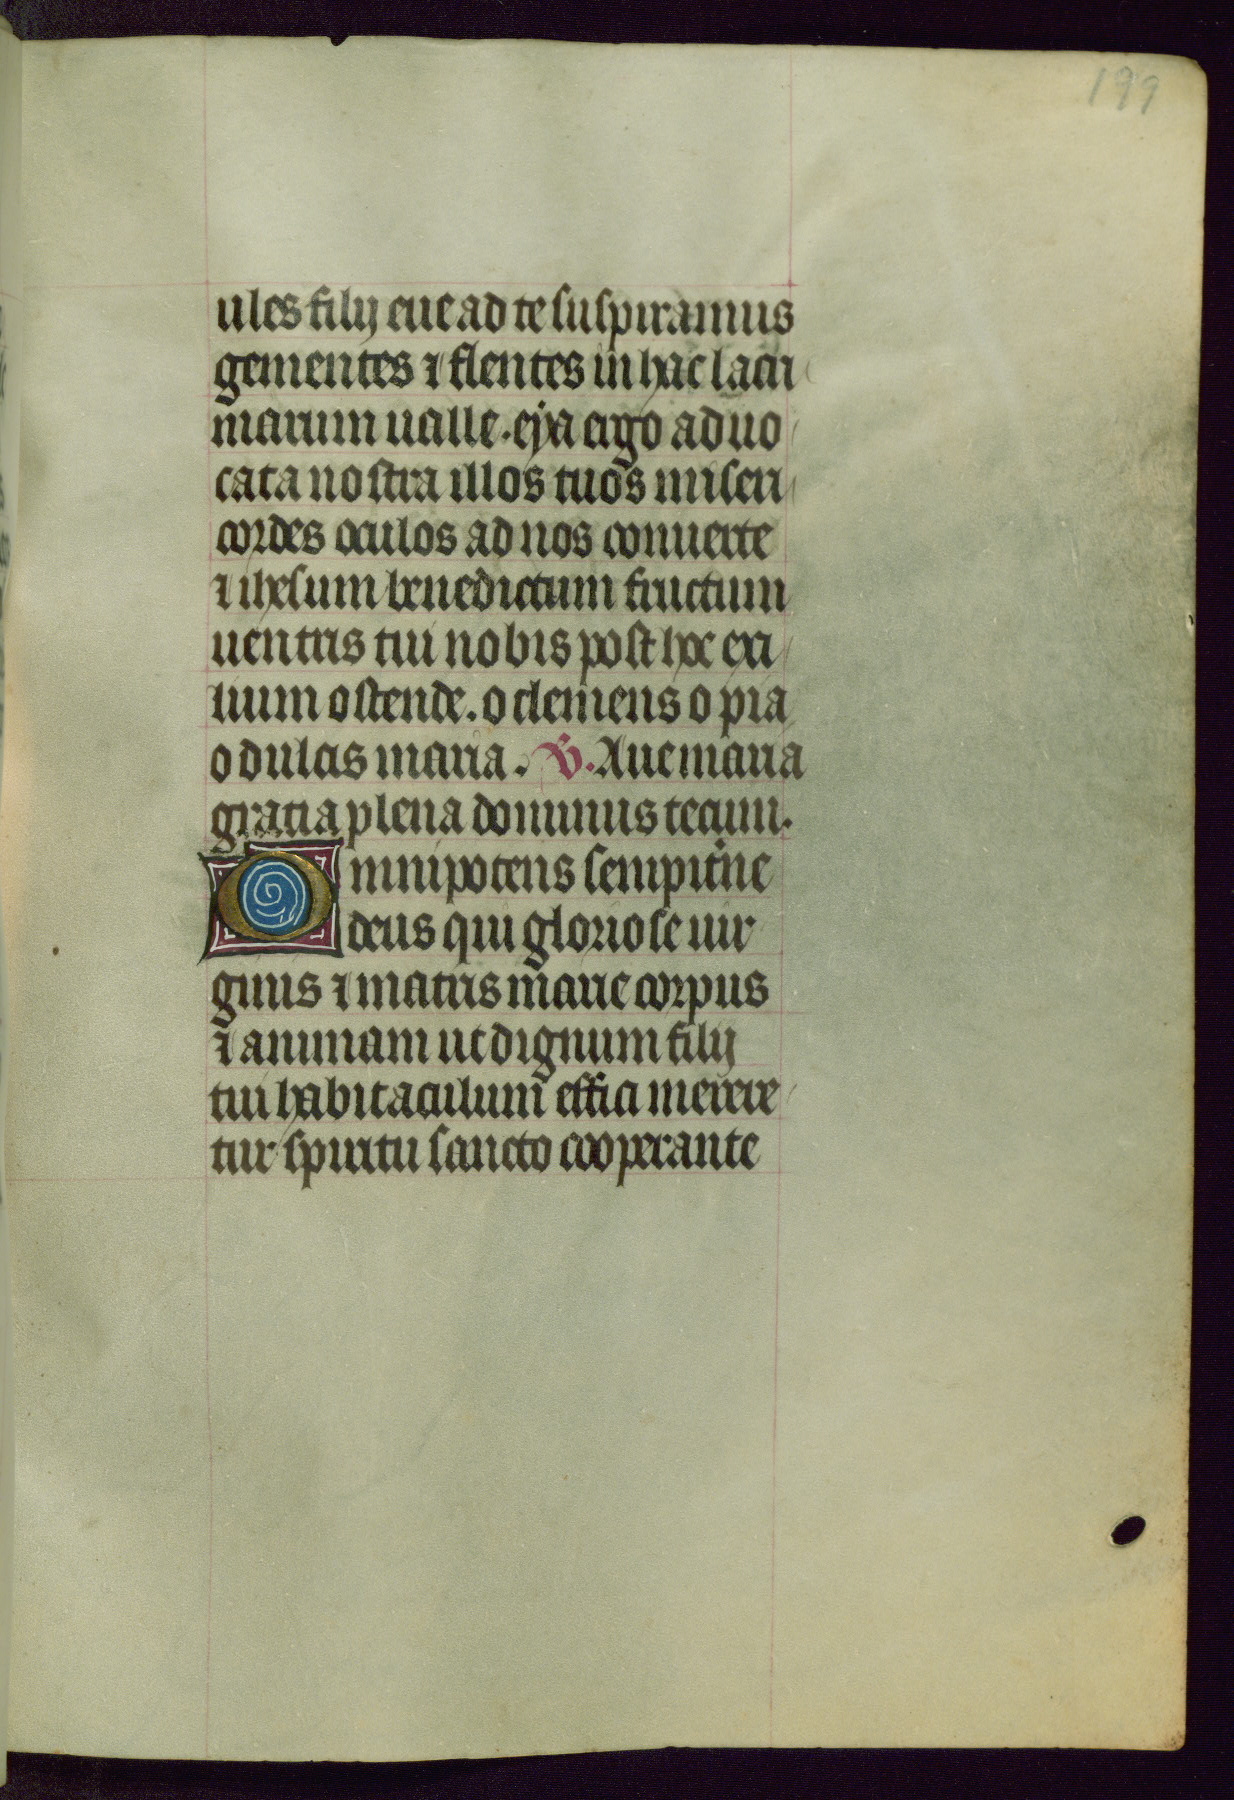 199
ules filij eue ad te suspiramus
gementes ⁊ flentes in hac lacri
marum ualle. eya ergo aduo
cata nostra illos tuos miseri
cordes oculos ad nos conuerte
⁊ ihesum benedictum fructum
uentris tui nobis post hoc exi
lium ostende. o clemens o pia
o dulcis maria. V. Aue maria
gratia plena dominus tecum.
Omnipotens sempit̾ne
deus qui gloriose uir
ginis ⁊ matris marie corpus
⁊ animam ut dignum filij
tui habitaculum effici merere
tur spiritu sancto cooperante